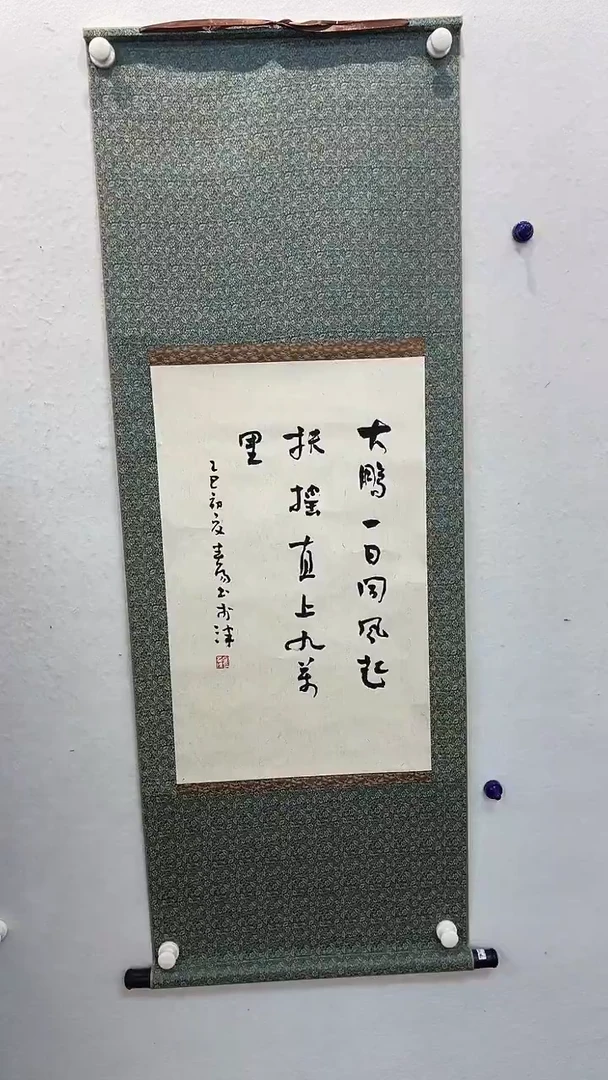 大鹏一日同风起
扶摇直上九万
里
乙巳初夏